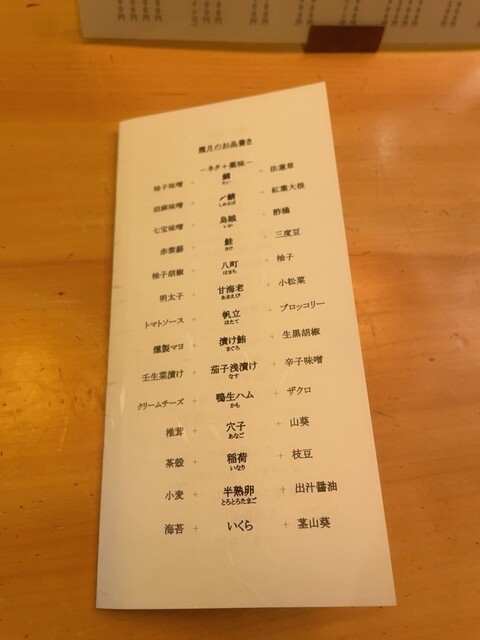 霜月のお品書き
～ネタ＋薬味～
柚子味噌 + 鯛 + 法蓮草
たい
胡麻味噌 + 〆鯖 + 紅葉大根
しめさば
七宝味噌 + 烏賊 + 酢橘
いか
赤紫蘇 + 鮭 + 三度豆
さけ
柚子胡椒 + 八町 + 柚子
はまち
明太子 + 甘海老 + 小松菜
あまえび
トマトソース + 帆立 + ブロッコリー
ほたて
燻製マヨ + 漬け鮪 + 生黒胡椒
まぐろ
壬生菜漬け + 茄子浅漬け + 辛子味噌
なす
クリームチーズ + 鴨生ハム + ザクロ
かも
椎茸 + 穴子 + 山葵
あなご
茶殻 + 稲荷 + 枝豆
いなり
小麦 + 半熟卵 + 出汁醤油
とろとろたまご
海苔 + いくら + 茎山葵